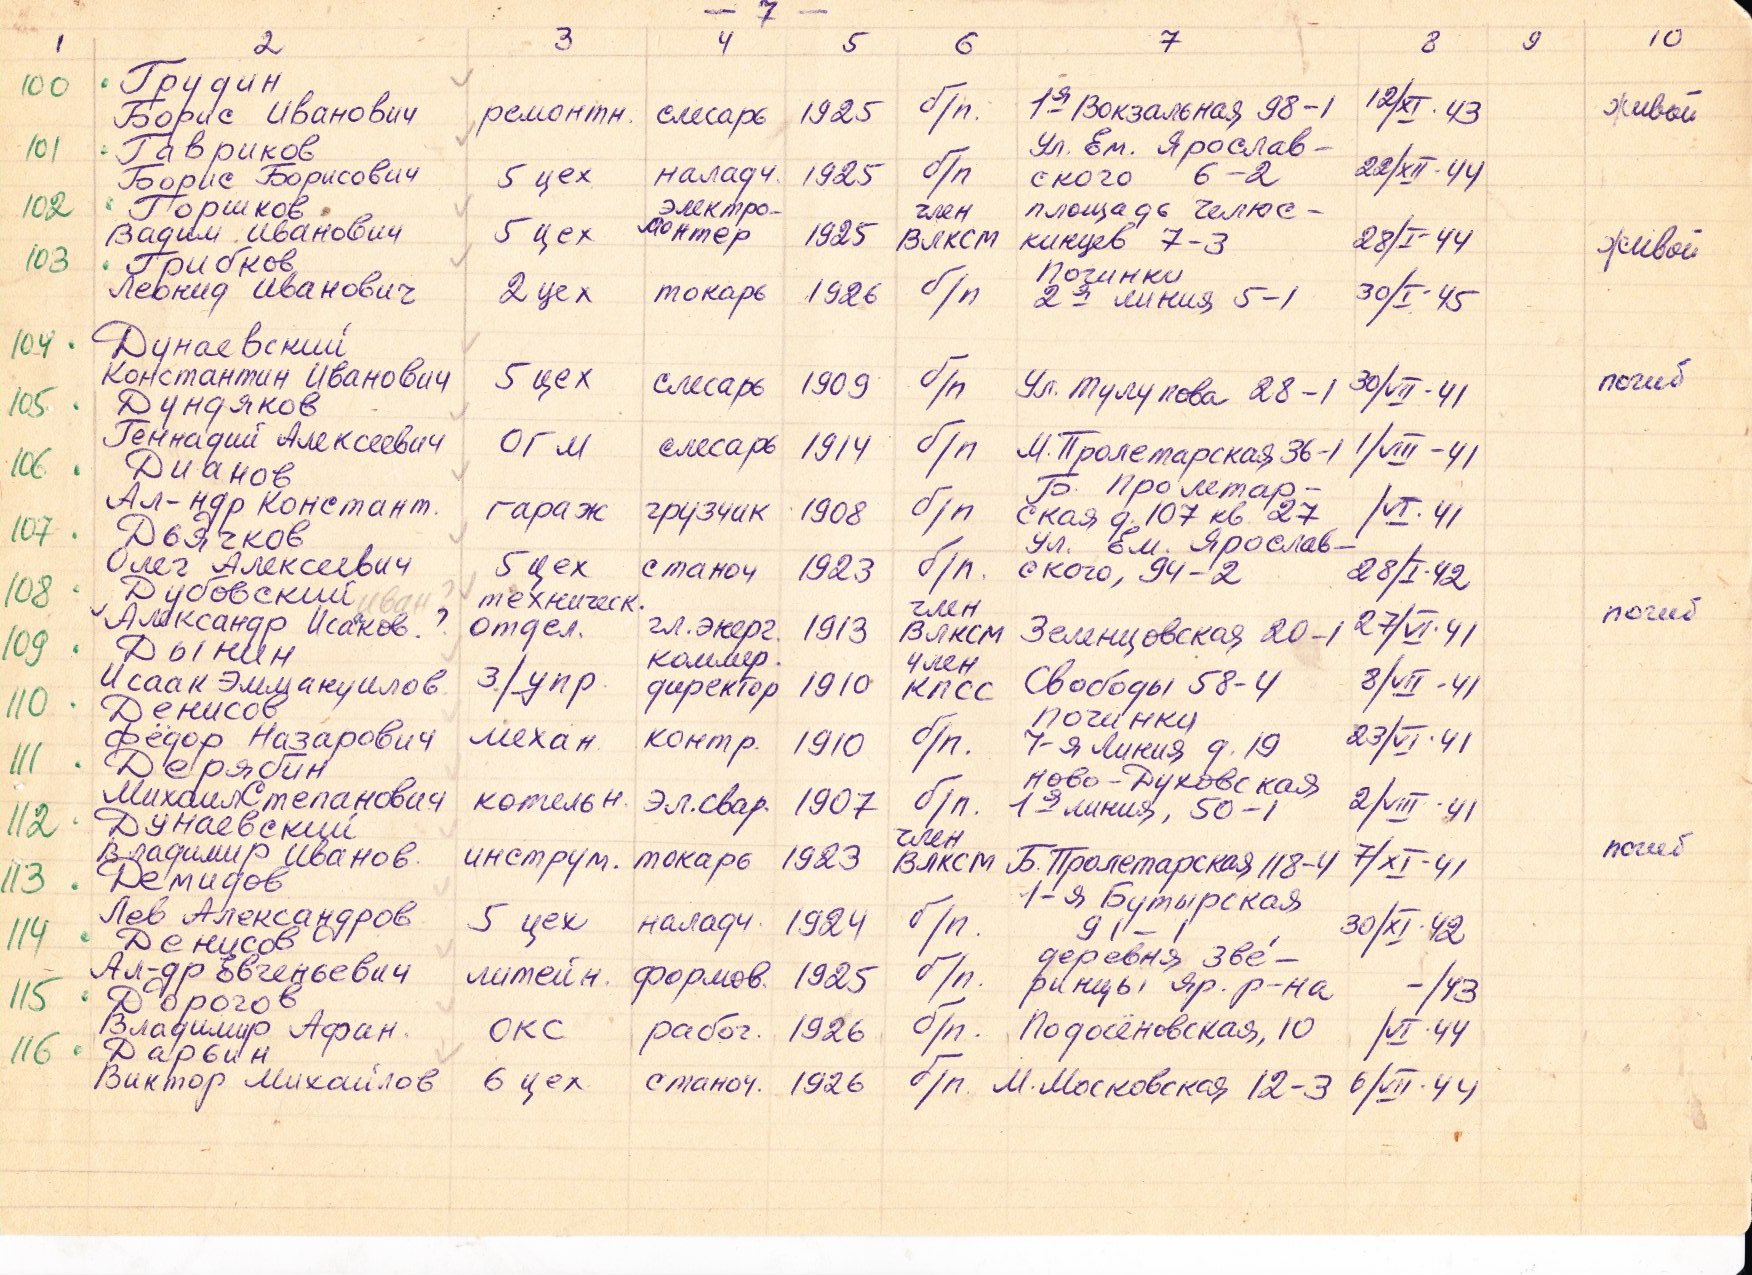 — 7 —
1 2 3 4 5 6 7 8 9 10
100 Грудин
Борис Иванович ремонтн. слесарь 1925 б/п. 1я Вокзальная 98-1 12/XI·43 живой
101 Гавриков Ул. Ем. Ярослав-
Борис Борисович 5 цех наладч. 1925 б/п ского 6-2 22/XII·44
102 Горшков электро- член площадь Челюс-
Вадим Иванович 5 цех монтер 1925 ВЛКСМ кинцев 7-3 28/I-44 живой
103 Грибков Починки
Леонид Иванович 2 цех токарь 1926 б/п 2я линия 5-1 30/I-45
104 Дунаевский
Константин Иванович 5 цех слесарь 1909 б/п Ул. Тулупова 28-1 30/VII-41 погиб
105 Дундяков
Геннадий Алексеевич ОГМ слесарь 1914 б/п М.Пролетарская 36-1 1/VIII-41
106 Дианов Б. Пролетар-
Ал-ндр Констант. гараж грузчик 1908 б/п ская д. 107 кв. 27 /VI·41
107 Дьячков Ул. Ем. Ярослав-
Олег Алексеевич 5 цех станоч 1923 б/п. ского, 94-2 28/I·42
108 Дубовский иван? техническ. член
Александр Исаков.? отдел. гл.энерг. 1913 ВЛКСМ Зеленцовская 20-1 27/VI·41 погиб
109 Дынин коммер. член
Исаак Эммануилов З/упр. директор 1910 КПСС Свободы 58-4 8/VII-41
110 Денисов Починки
Фёдор Назарович механ. контр. 1910 б/п. 7-я Линия д. 19 23/VI·41
111 Дерябин Ново-Духовская
Михаил Степанович котельн. эл.свар. 1907 б/п. 1я линия, 50-1 2/VIII·41
112 Дунаевский член
Владимир Иванов. инструм. токарь 1923 ВЛКСМ Б.Пролетарская 118-4 7/XI-41 погиб
113 Демидов 1-я Бутырская
Лев Александров 5 цех наладч. 1924 б/п. 91-1 30/XI·42
114 Денисов деревня Зве-
Ал-др Евгеньевич литейн. формов. 1925 б/п. ринцы Яр. р-на -/43
115 Дорогов
Владимир Афан. ОКС рабоч. 1926 б/п. Подосёновская, 10 /VI·44
116 Дарьин
Виктор Михайлов 6 цех станоч. 1926 б/п. М.Московская 12-3 6/VII·44